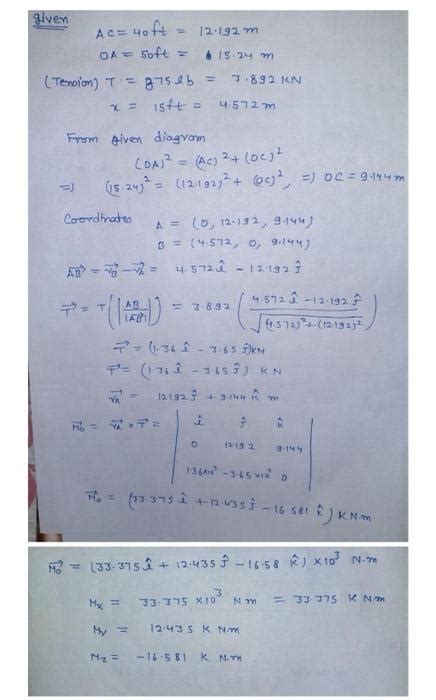 given
AC = 40ft = 12.192 m
OA = 50ft = 15.24 m
(Tension) T = 875 lb = 3.892 KN
x = 15ft = 4.572 m
From given diagram
(OA)² = (AC)² + (OC)²
=) (15.24)² = (12.192)² + (OC)², =) OC = 9.144 m
Coordinates A = (0, 12.192, 9.144)
B = (4.572, 0, 9.144)
AB⃗ = r⃗B - r⃗A = 4.572 î - 12.192 ĵ
T⃗ = T(|AB/|AB⃗||) = 3.892 (4.572 î - 12.192 ĵ / √(4.572)² + (12.192)²)
T⃗ = (1.36 î - 3.65 ĵ)KN
T⃗ = (1.36 î - 3.65 ĵ) KN
r⃗A = 12.192 ĵ + 9.144 k̂ m
M⃗o = r⃗A × T⃗ = | î ĵ k̂ |
| 0 12.192 9.144 |
| 1.36×10³ -3.65×10³ 0 |
M⃗o = (33.375 î + 12.435 ĵ - 16.581 k̂) KN.m
M⃗o = (33.375 î + 12.435 ĵ - 16.58 k̂) ×10³ N.m
Mx = 33.375 ×10³ Nm = 33.375 K Nm
My = 12.435 K N.m
Mz = -16.581 K N.m